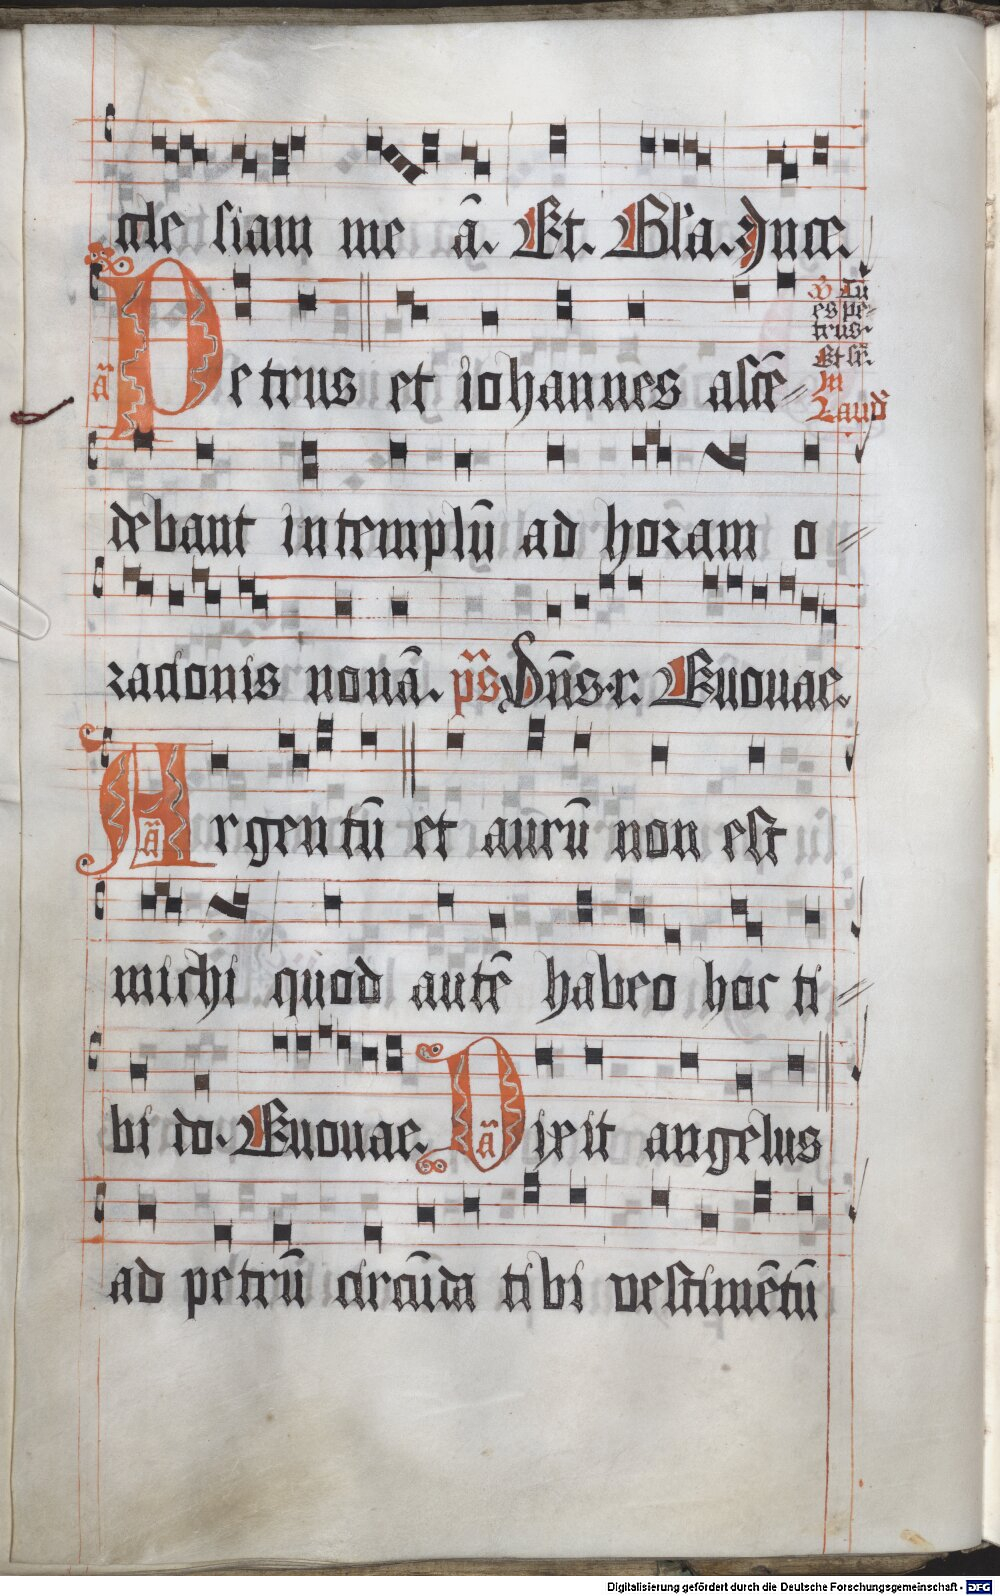 cle siam me ā. Et. Gl'a. In ce.
Petrus et iohannes ascē⸗
ã
℣ Tu
es pe⸗
trus.
Et sr̄.
In
Laud̄
debant in templū ad horam o⸗
racionis nonā. p̄s Dn̄s.r. Euouae.
Argentū et aurū non est
ã
michi quod autē habeo hoc ti⸗
bi do. Euouae. Dixit angelus
ã
ad petrū circūda tibi vestimētū
Digitalisierung gefördert durch die Deutsche Forschungsgemeinschaft - DFG